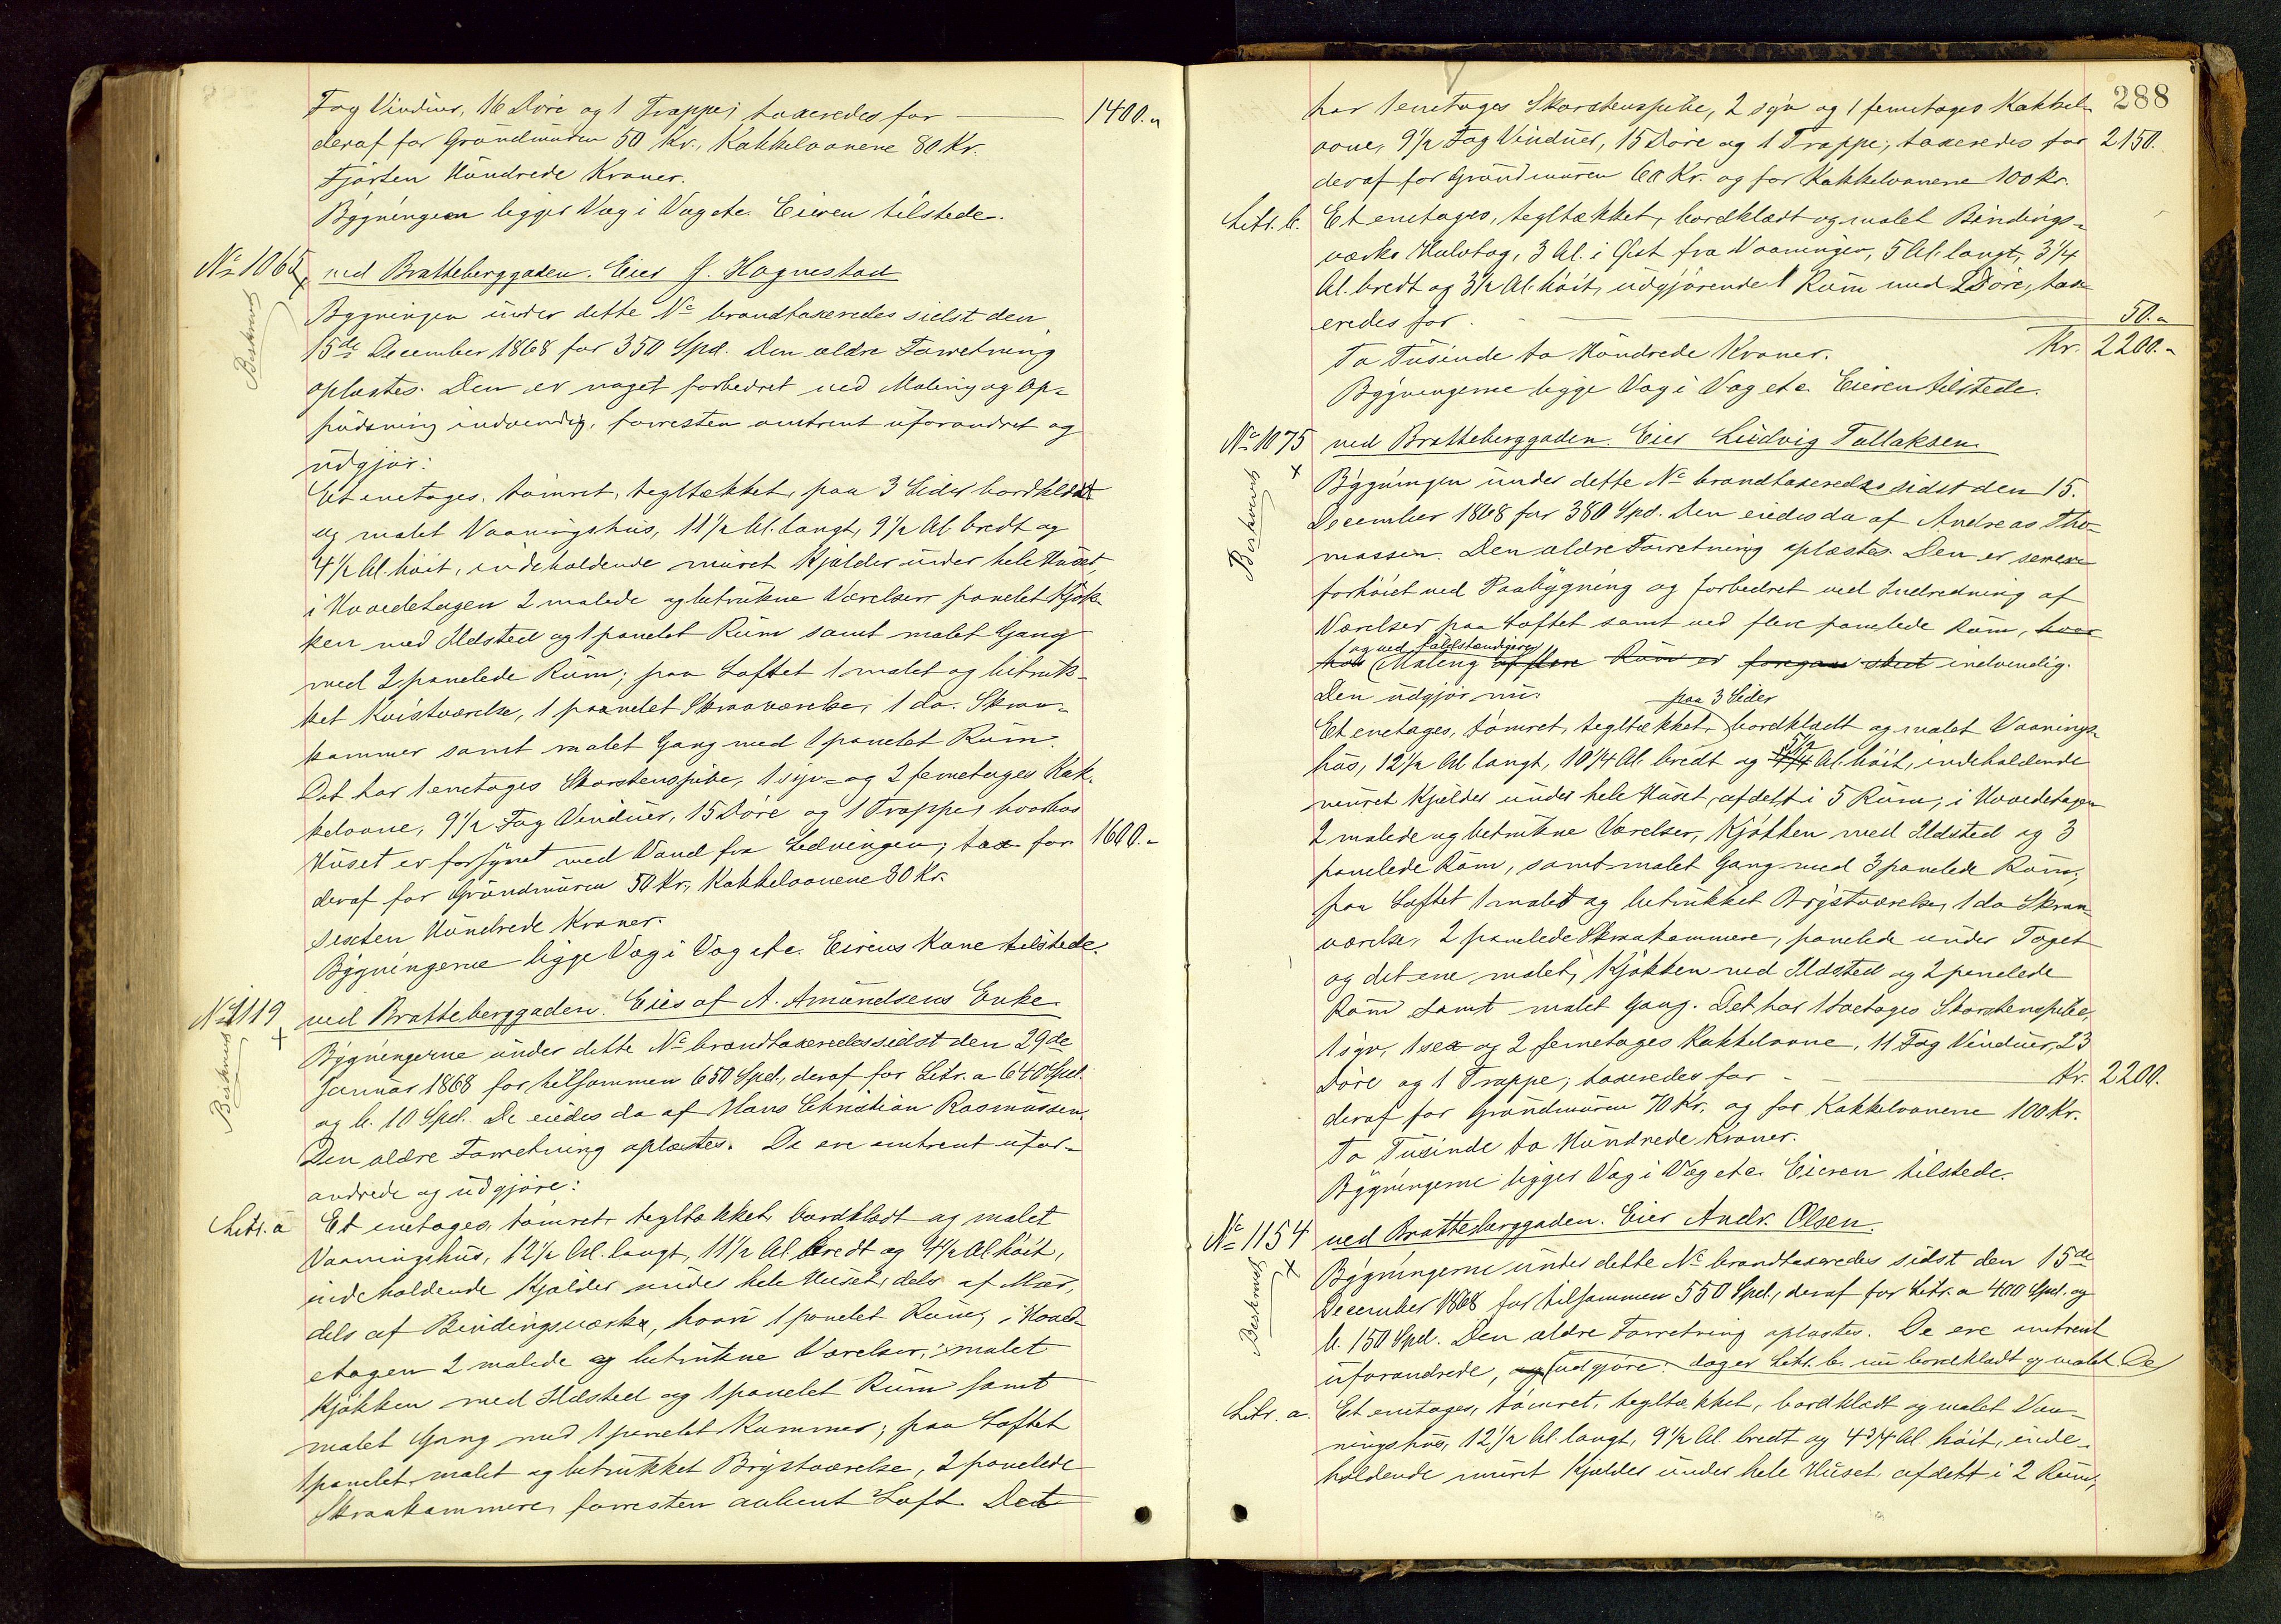 Fag Vinduer, 16 Döre og 1 Trappe; taxeredes for — 1400.-
deraf for Grundmuren 50 Kr., Kakkelovnene 80 Kr.
Fjorten Hundrede Kroner.
Bygningen ligger Væg i Væg etc. Eieren tilstede.
No 1065 ved Bratteberggaden. Eier J. Hognestad
Beskrevet
Bygningen under dette No brandtaxeredes sidst den
15de December 1868 for 350 Spd. Den ældre Forretning
oplæstes. Den er noget forbedret ved Maling og Op-
pudsning indvendig, forresten omtrent uforandret og
udgjør:
Et enetages, tömret, tegltækket, paa 3 Sider bordklædt
og malet Vaaningshus, 11 1/2 Al. langt, 9 1/2 Al. bredt og
4 1/2 Al. höit, indeholdende muret Kjælder under hele Huset
i Hovedetagen 2 malede og betrukne Værelser panelet Kjök-
ken med Ildsted og 1 panelet Rum samt malet Gang
med 2 panelede Rum; paa Loftet 1 malet og betruk-
ket Kvistværelse, 1 panelet Skraaværelse, 1 do. Skraa-
kammer samt malet Gang med 1 panelet Rum.
Det har 1 enetages Skorstenspibe, 1 syv- og 2 femetages Kak-
kelovne, 9 1/2 Fag Vinduer, 15 Döre og 1 Trappe, hvorhos
Huset er forsynet med Vand fra Ledningen; tax for 1600.-
deraf for Grundmuren 50 Kr., Kakkelovnene 80 Kr.
Sexten Hundrede Kroner.
Bygningerne ligge Væg i Væg etc. Eierens Kone tilstede.
No 1119 ved Bratteberggaden. Eies af A. Amundsens Enke
Beskrevet
Bygningerne under dette No brandtaxeredes sidst den 29de
Januar 1868 for tilsammen 650 Spd., deraf for Litr. a 640 Spd.
og b. 10 Spd. De eiedes da af Hans Christian Rasmussen.
Den ældre Forretning oplæstes. De ere omtrent ufor-
andrede og udgjøre:
Litr. a Et enetages, tömret, tegltækket, bordklædt og malet
Vaaningshus, 12 1/2 Al. langt, 11 1/2 Al. bredt og 4 1/2 Al. höit,
indeholdende Kjælder under hele Huset, dels af Mur,
dels af Bindingsværk, hvori 1 panelet Rum, i Hoved-
etagen 2 malede og betrukne Værelser, malet
Kjøkken med Ildsted og 1 panelet Rum samt
malet Gang med 1 panelet Kammer; paa Loftet
1 panelet, malet og betrukket Brystværelse, 2 panelede
Skraakammere, forresten aabent Loft. Det
288
har 1 enetages Skorstenspibe, 2 syv og 1 femetages Kakkel-
ovne, 9 1/2 Fag Vinduer, 15 Döre og 1 Trappe; taxeredes for 2150.
deraf for Grundmuren 60 Kr. og for Kakkelovnene 100 Kr.
Litr. b. Et enetages, tegltækket, bordklædt og malet Bindings-
værks Halvtag, 3 Al. i Øst fra Vaaningen, 5 Al. langt, 3 1/4
Al. bredt og 3 1/2 Al. höit, udgjörende 1 Rum med 2 Döre, tax-
eredes for — 50.-
To Tusinde to Hundrede Kroner. Kr. 2200.-
Bygningerne ligge Væg i Væg etc. Eieren tilstede.
No 1075 ved Bratteberggaden. Eier Ludvig Tallaksen
Beskrevet
Bygningen under dette No brandtaxeredes sidst den 15.
December 1868 for 380 Spd. Den eiedes da af Andreas Tho-
massen. Den ældre Forretning oplæstes. Den er senere
forhöiet ved Paabygning og forbedret ved Indredning af
Værelser paa Loftet samt ved flere panelede Rum, hvor
og ved fuldstændigere
hos Maling af flere Rum er foregaaet indvendig.
Den udgjör nu:
paa 3 Sider
Et enetages, tömret, tegltækket, bordklædt og malet Vaanings-
5 1/2
hus, 12 1/2 Al. langt, 10 1/4 Al. bredt og 4 1/4 Al. höit, indeholdende
muret Kjælder under hele Huset, afdelt i 5 Rum; i Hovedetagen
2 malede og betrukne Værelser, Kjökken med Ildsted og 3
panelede Rum, samt malet Gang med 3 panelede Rum;
paa Loftet 1 malet og betrukket Brystværelse, 1 do Skraa-
værelse, 2 panelede Skraakammere, panelede under Taget
og det ene malet; Kjökken med Ildsted og 2 panelede
Rum samt malet Gang. Det har 1 toetages Skorstenspibe,
1 syv, 1 sex og 2 femetages Kakkelovne, 11 Fag Vinduer, 23
Döre og 1 Trappe; taxeredes for — Kr. 2200.
deraf for Grundmuren 70 Kr. og for Kakkelovnene 100 Kr.
To Tusinde to Hundrede Kroner.
Bygningerne ligger Væg i Væg etc. Eieren tilstede.
No 1154 ved Bratteberggaden. Eier Andr. Olsen.
Beskrevet
Bygningerne under dette No brandtaxeredes sidst den 15de
December 1868 for tilsammen 550 Spd., deraf for Litr. a 400 Spd. og
b. 150 Spd. Den ældre Forretning oplæstes. De ere omtrent
uforandrede, og udgjöre: dog er Litr. b. nu bordklædt og malet. De
Litr. a. Et enetages, tömret, tegltækket, bordklædt og malet Vaa-
ningshus, 12 1/2 Al. langt, 9 1/2 Al. bredt og 4 3/4 Al. höit, inde-
holdende muret Kjælder under hele Huset, afdelt i 2 Rum,